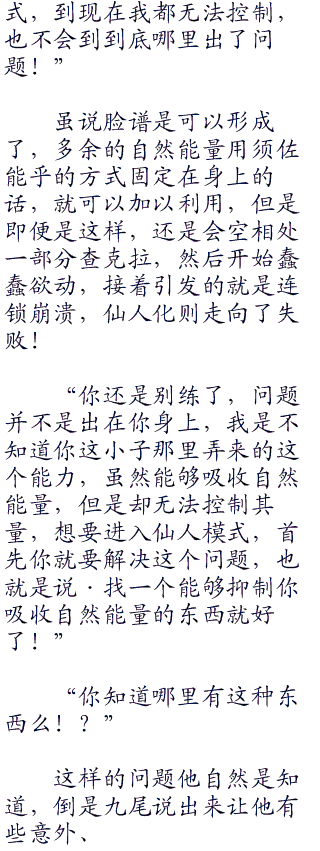 式，到现在我都无法控制，
也不会到到底哪里出了问
题！”
虽说脸谱是可以形成
了，多余的自然能量用须佐
能乎的方式固定在身上的
话，就可以加以利用，但是
即便是这样，还是会空相处
一部分查克拉，然后开始蠢
蠢欲动，接着引发的就是连
锁崩溃，仙人化则走向了失
败！
“你还是别练了，问题
并不是出在你身上，我是不
知道你这小子那里弄来的这
个能力，虽然能够吸收自然
能量，但是却无法控制其
量，想要进入仙人模式，首
先你就要解决这个问题，也
就是说·找一个能够抑制你
吸收自然能量的东西就好
了！”
“你知道哪里有这种东
西么！？”
这样的问题他自然是知
道，倒是九尾说出来让他有
些意外、